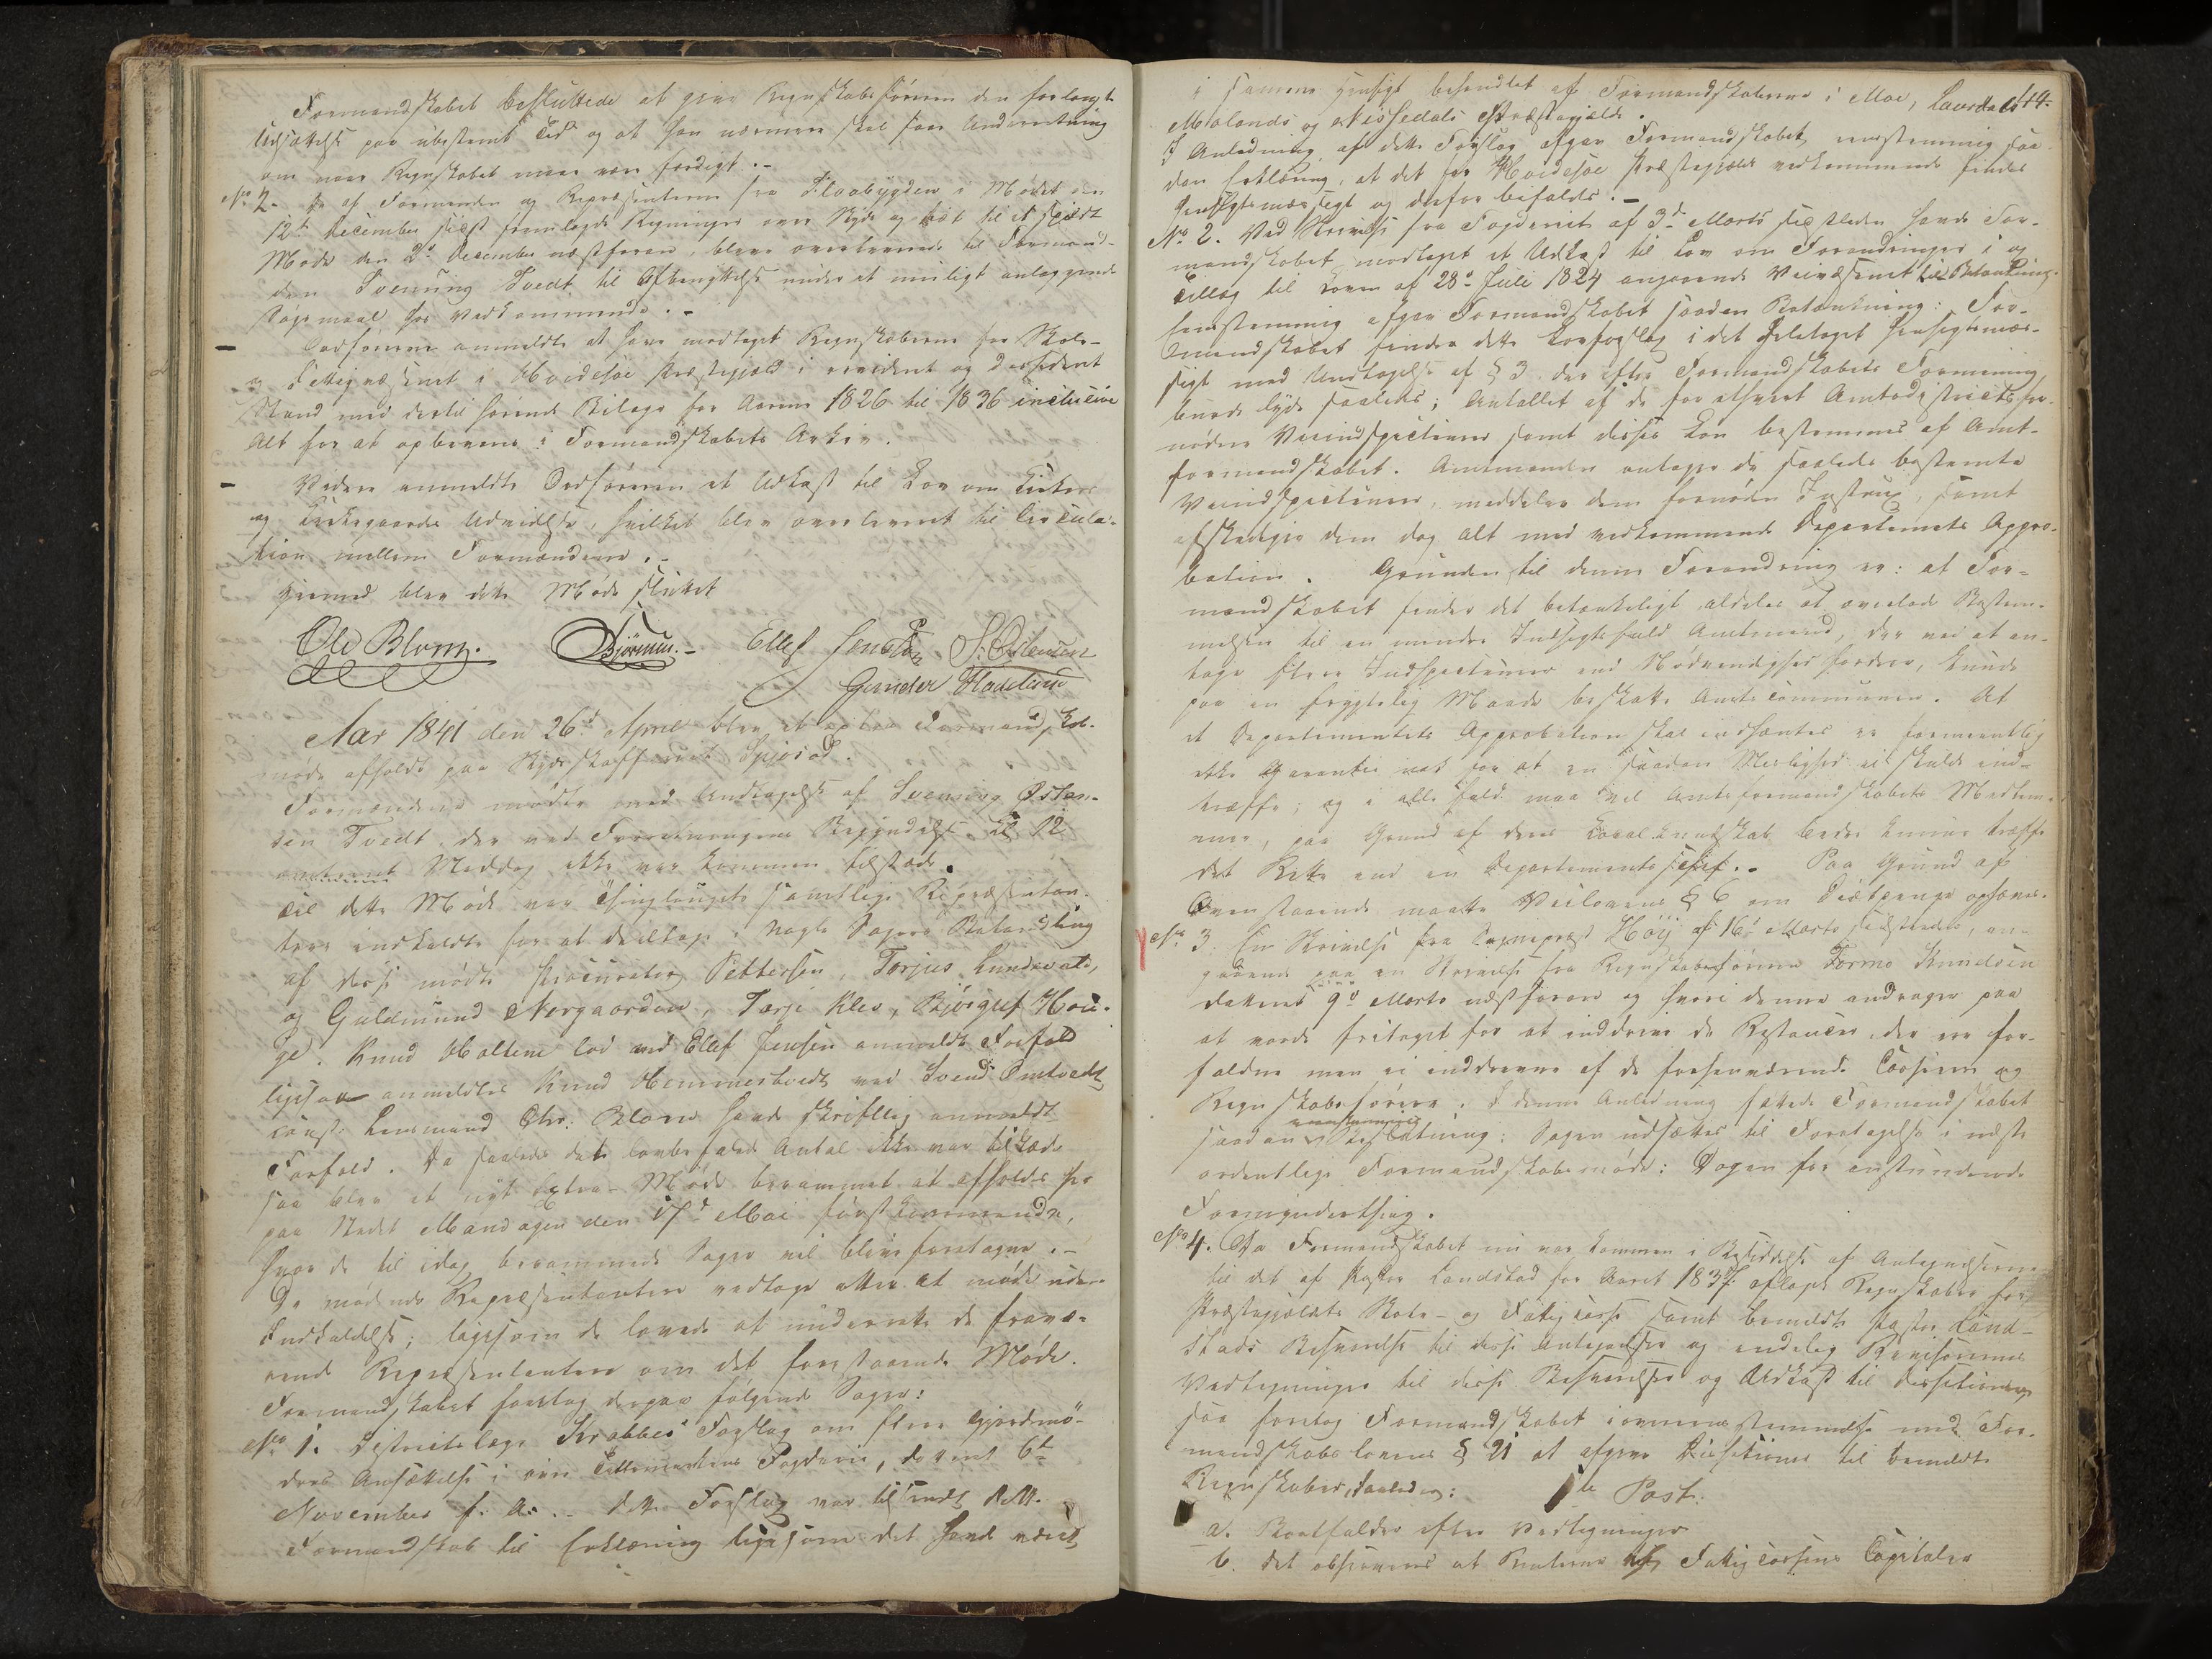 Formandskabet besluttede at give Regnskabsføreren den forlangte
Udsættelse paa ubestemt Tid og at han nærmere skal faae Underretning
om naar Regnskabet maa være færdigt.-
No 2. De af Formænden og Repræsentanterne fra Flaabygden i Mødet den
12te December sidst fremlagde Regninger over Skyds og Kost til et
Møde den 2den December næstforan, bleve overleverede til Formand-
den Svenning Tvedt til Afbenyttelse under et muligt anlæggende
Sagsmaal hos Vedkommende.-
- Ordføreren anmeldte at have modtaget Regnskaberne for Skole-
og Fattigvæsenet i Hvidesøe Præstegjæld i revideret og decideret
Stand med dertil hørende Bilage for Aarene 1826 til 1836 inclusive
Alt for at opbevares i Formandskabets Arkiv.
- Videre anmeldte Ordføreren et Udkast til Lov om Kirkers
og Kirkegaardes Udvidelse, hvilket blev overleveret til Circula-
tion mellem Formændene.-
Hermed blev dette Møde sluttet
Ole Blom. Bjørnsen.- Ellef Jensen S. Østensen
Gunder Fladelund
Aar 1841 den 26d April blev et extra Formandskabs-
møde afholdt paa Skydsskaffer Spiosod.
Formændene mødte med Undtagelse af Svenning Østen-
sen Tvedt, der ved Forretningens Begyndelse Kl 12
Middag ikke var kommen tilstede.
Til dette Møde var Thinglaugets samtlige Repræsentan-
tere indkaldte for at deeltage i nogle Sagers Behandling
af disse mødte Procurator Pettersen, Torjus Lundevald,
og Guldmund Norgaarden, Tarje Kleo, Bjørgulf Hau-
ge. Knud Moltene lod ved Ellef Jensen anmelde Forfald
ligesom anmeldtes Knud Hemmestvedt ved Svend Omtvedt
const. Lensmand Chr. Blom havde skriftlig anmeldt
Forfald. Da saaledes det lovbefalede Antal ikke var tilstede
saa blev et nyt extra-Møde berammet at afholdes her
paa Stedet Mandagen den 17d Mai førstkommende,
hvor de til idag berammede Sager vil blive foretagne.-
De mødende Repræsentantere vedtoge atter at møde uden
Indkaldelse; ligesom de lovede at underrette de fravæ-
rende Repræsentantere om det forestaaende Møde.
Formandskabet foretog derpaa følgende Sager:
No 1. Districtslæge Krabbes Forslag om flere Gjordemø-
dres Ansættelse i øvre Tellemarkens Fogderie, dateret 6te
November f. A.- Dette Forslag var tilsendt dette
Formandskab til Erklæring ligesom det havde været
i samme Hensigt behandlet af Formandskaberne i Moe, Laurdals 114.
Molands og Nissedals Præstegjælde.
I Anledning af dette Forslag afgav Formandskabet eenstemmig saa-
dan Erklæring, at det for Hvidesøe Præstegjæld vedkommende findes
Hensigtsmæssigt og derfor bifaldes.-
No 2. Ved Skrivelse fra Fogderiet af 3d Marts sidstleden havde For-
mandskabet modtaget et Udkast til Lov om Forandringer i og
Tillæg til Loven af 28d Juli 1824 angaaende Veivæsenet til Betænkning.
Eenstemmig afgav Formandskabet saadan Betænkning: For-
mandskabet finder dette Lovforslag i det Heletaget Hensigtsmæs-
sigt med Undtagelse af § 3 der efter Formandskabets Formening
burde lyde saaledes; Antallet af de for ethvert Amtsdistrict for-
nødne Veiinspecteurer samt disses Løn bestemmes af Amt-
formandskabet. Amtmanden antager de saaledes bestemte
Veiindspecteurer, meddeler dem fornøden Instrux, samt
afskediger dem dog alt med vedkommende Departements Appro-
bation. Grunden til denne Forandring er: at For-
mandskabet finder det betænkeligt aldeles at overlade Bestem-
melsen til en mindre Indsigtsfuld Amtmand, der ved at an-
tage flere Indspecteurer end Nødvendighed fordrer, kunde
paa en frygtelig Maade beskatte Amtscommunen. At
et Departements Approbation skal indhentes er formeentlig
ikke Garantie nok for at en saadan Muelighed ei skulde ind-
træffe; og i alle Fald maa vel Amtsformandskabets Medlem-
mer, paa Grund af deres Localkundskab bedre kunne træffe
det Rette end en Departementschef.- Paa Grund af
Ovenstaaende maatte Veilovens § 6 om Diætpenge ophæves.
No 3. En Skrivelse fra Sognepræst Høÿ af 16d Marts sidstleden, an-
gaaende en Skrivelse fra Regnskabsfører Tormo Knudsen
dateret 9d Marts næstforan og hvori denne andrager paa
at vorde fritaget for at inddrive de Restancer der ere for-
faldne men ei inddrevne af de forhenværende Casserer og
Regnskabsførere. I denne Anledning fattede Formandskabet
saadan eenstemmig Beslutning: Sagen udsættes til Foretagelse i næste
ordentlige Formandskabsmøde: Dagen før anstundende
Formynderthing.
No 4. Da Formandskabet nu var kommen i Besiddelse af Antegnelserne
til det af Pastor Landstad for Aaret 1837 aflagte Regnskaber for
Præstegjældets Skole- og Fattigcasse samt bemeldte Pastor Land-
stads Besvarelse til disse Antegnelser og endelig Revisorernes
Vedtegninger til disse Besvarelser og Udkast til Decisioner,
saa foretog Formandskabet i overeensstemmelse med For-
mandskabslovens § 21 at afgive Decisioner til bemeldte
Regnskaber, saaledes: 1te Post.
a. Bortfalder efter Vedtegninger
b. Det observeres at Renterne af Fattigcassens Capitaler